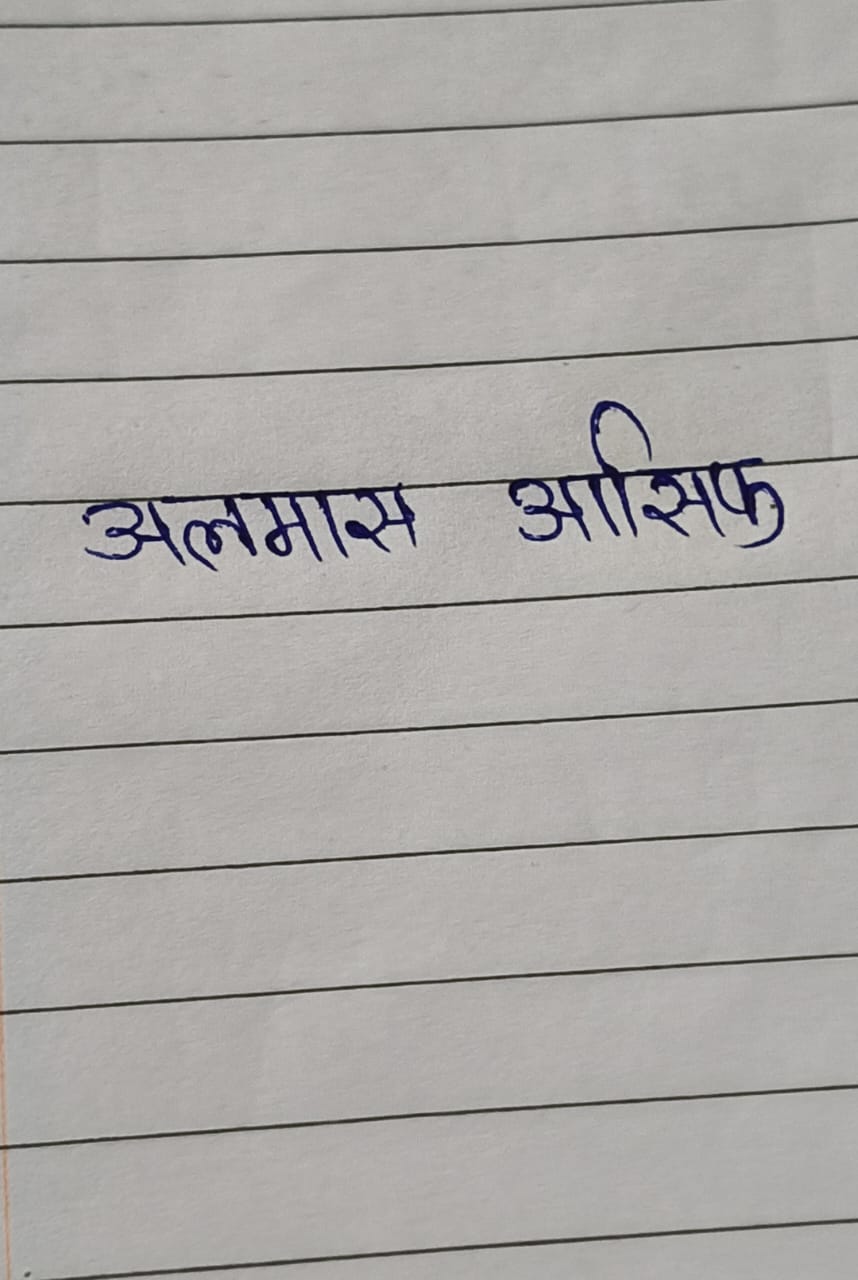 अलमास आसिफ